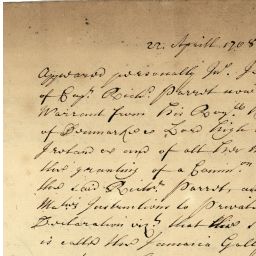 22. Aprill 1708
Appeared personally Jno.
of Capt. Richd. Parrot now
Warrant from his Roy.ll H
of Denmark &c Lord high
Ireland &c and of all her
the granting of a Comm.on
the said Richd. Parrot, a
Ma.ties Instructions to Privat
Declaration viz.t that this s
is called the Jamaica Gall